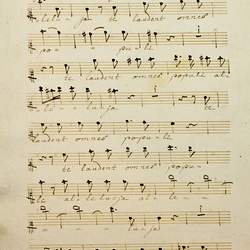 lelu - ja te laudent omnes
po - pu - li
te laudent omnes populi al-
le - lu - ja te
laudent omnes popu - li
te laudent omnes popu -
li al - leluja al - le -
- lu - ja